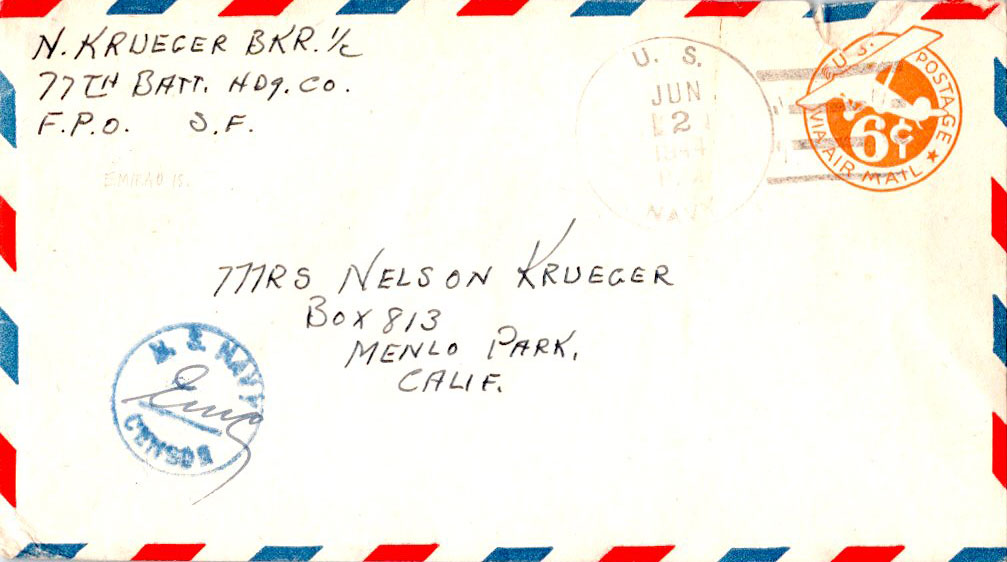 N. KRUEGER BKR. 1/c
77TH BATT. HDQ. CO.
F.P.O. S.F.
EMIRAU IS.
U. S.
JUN
2
1944
NAVY
U.S. POSTAGE
6¢
VIA AIR MAIL
MRS NELSON KRUEGER
BOX 813
MENLO PARK,
CALIF.
U. S. NAVY
CENSOR